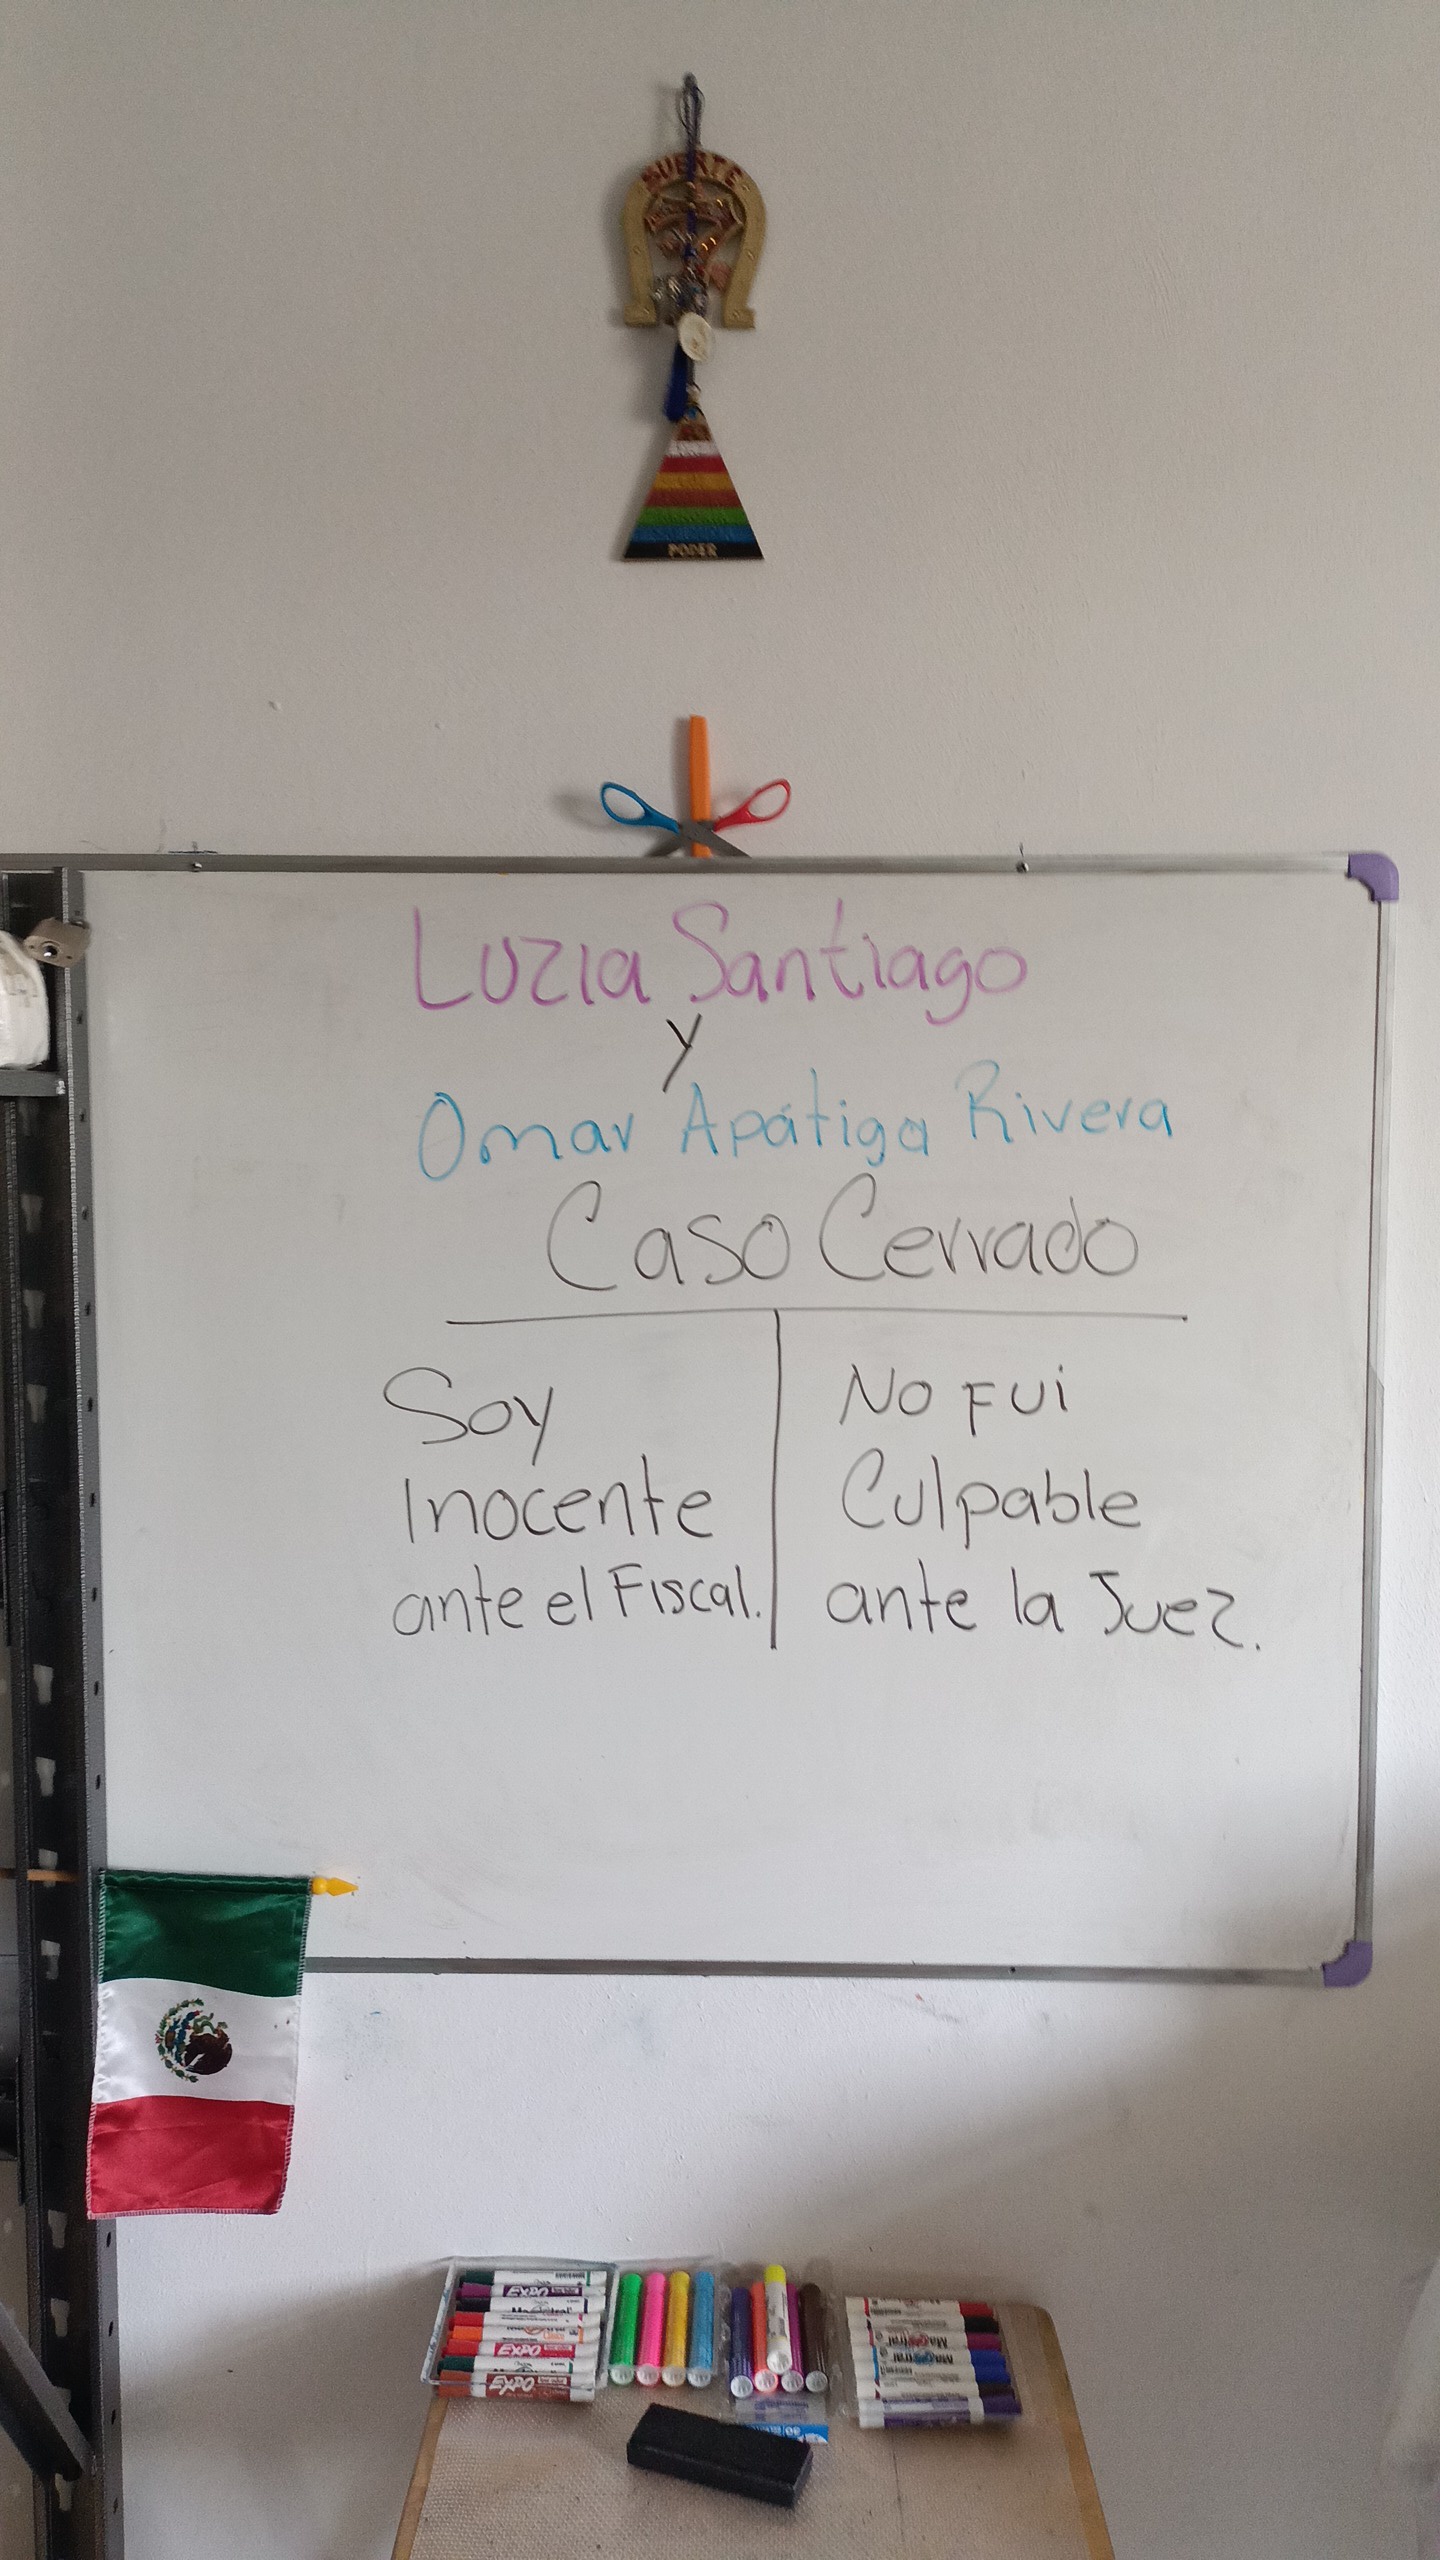 SUERTE
PODER
Luzia Santiago
y
Omar Apátiga Rivera
Caso Cerrado
Soy
Inocente
ante el Fiscal.
No Fui
Culpable
ante la Juez.
EXPO
EXPO
EXPO
Magistral
Magistral